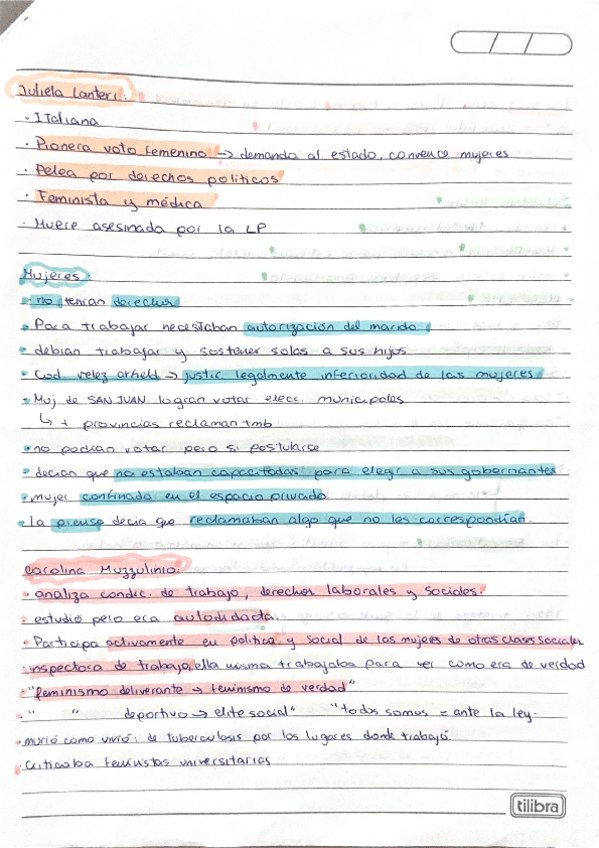 Julieta Lanteri:
· Italiana
· Pionera voto femenino → demanda al estado, convence mujeres
· Pelea por derechos políticos
· Feminista y médica
· Muere asesinada por la LP
Mujeres:
· no tenían derechos
· Para trabajar necesitaban autorización del marido
· debían trabajar y sostener solas a sus hijos
· Cod. velez arfield → justic legalmente inferioridad de las mujeres
· Muj de SAN JUAN logran votar elecc. municipales
↳ + provincias reclaman tmb
· no podían votar pero si postularse
· decían que no estaban capacitadas para elegir a sus gobernantes
· mujer confinada en el espacio privado
· la prensa decia que reclamaban algo que no les correspondían
Carolina Muzzulinia:
· analiza condic. de trabajo, derechos laborales y sociales.
· estudio pero era autodidacta.
· Participa activamente en política y social de las mujeres de otras clases sociales
· inspectora de trabajo, ella misma trabajaba para ver como era de verdad
· "feminismo deliverante → feminismo de verdad"
· " " deportivo → elite social" "todos somos = ante la ley.
· murió como vivió: de tuberculosis por los lugares donde trabajó.
· criticaba feministas universitarias
tilibra